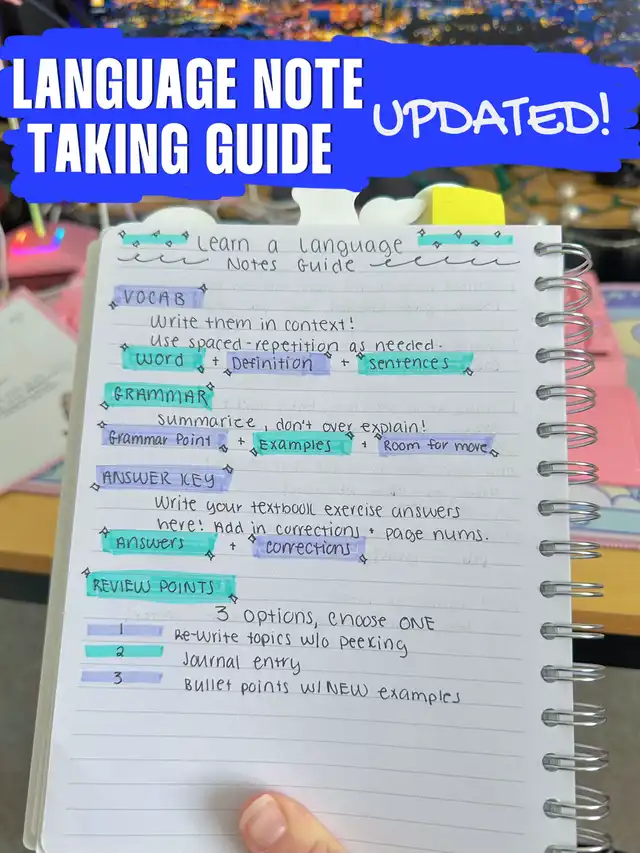 LANGUAGE NOTE
TAKING GUIDE
UPDATED!
Learn a Language
Notes Guide
VOCAB
Write them in context!
Use spaced-repetition as needed.
Word + Definition + sentences
GRAMMAR
summarize, don't over explain!
Grammar Point + Examples + Room for more
ANSWER KEY
Write your textbook exercise answers
here! Add in corrections + page nums.
Answers + corrections
REVIEW POINTS
3 options, choose ONE
1 Re-write topics w/o peeking
2 Journal entry
3 Bullet points w/ NEW examples